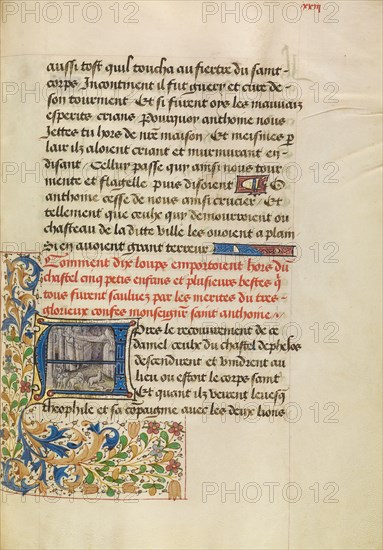 xxiij
aussi tost quil toucha au fiertre du saint
corps Incontinent il fut guery et cure de
son tourment Et si furent oys les mauvaiz
esperits crians Pourquoy anthome nous
Jettes tu hors de nre maison / Et meismes p
lair ilz aloient criant et murmurant en
disant / Cellui passe qui ainsi nous tour
mente et flagelle Puis disoient O
anthome cesse de nous ainsi crucier / Et
tellement que ceulx qui demouroient ou
chastel de la ditte ville les ouoient a plain
Si en avoient grant terreur
Comment dix loups emportoient hors du
chastel cinq petis enfans et plusieurs bestes q
tous furent sauluez par les merites du tres
glorieux confes monseigne saint anthome
Apres le recouvrement de ce
damel ceulx du chastel de phelos
descendirent et vindrent au
lieu ou estoit le corps saint
Et quant ilz veirent levesq
theophile et sa copaignie avec les deux lions
PHOTO 12